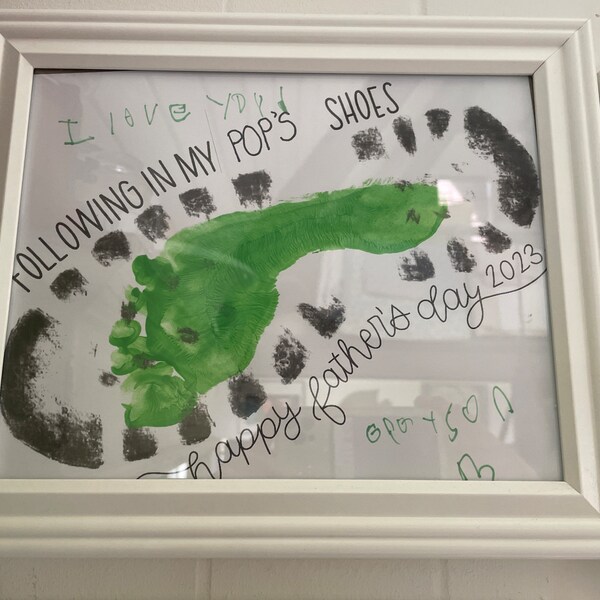 I love you
FOLLOWING IN MY POP'S SHOES
happy father's day 2023